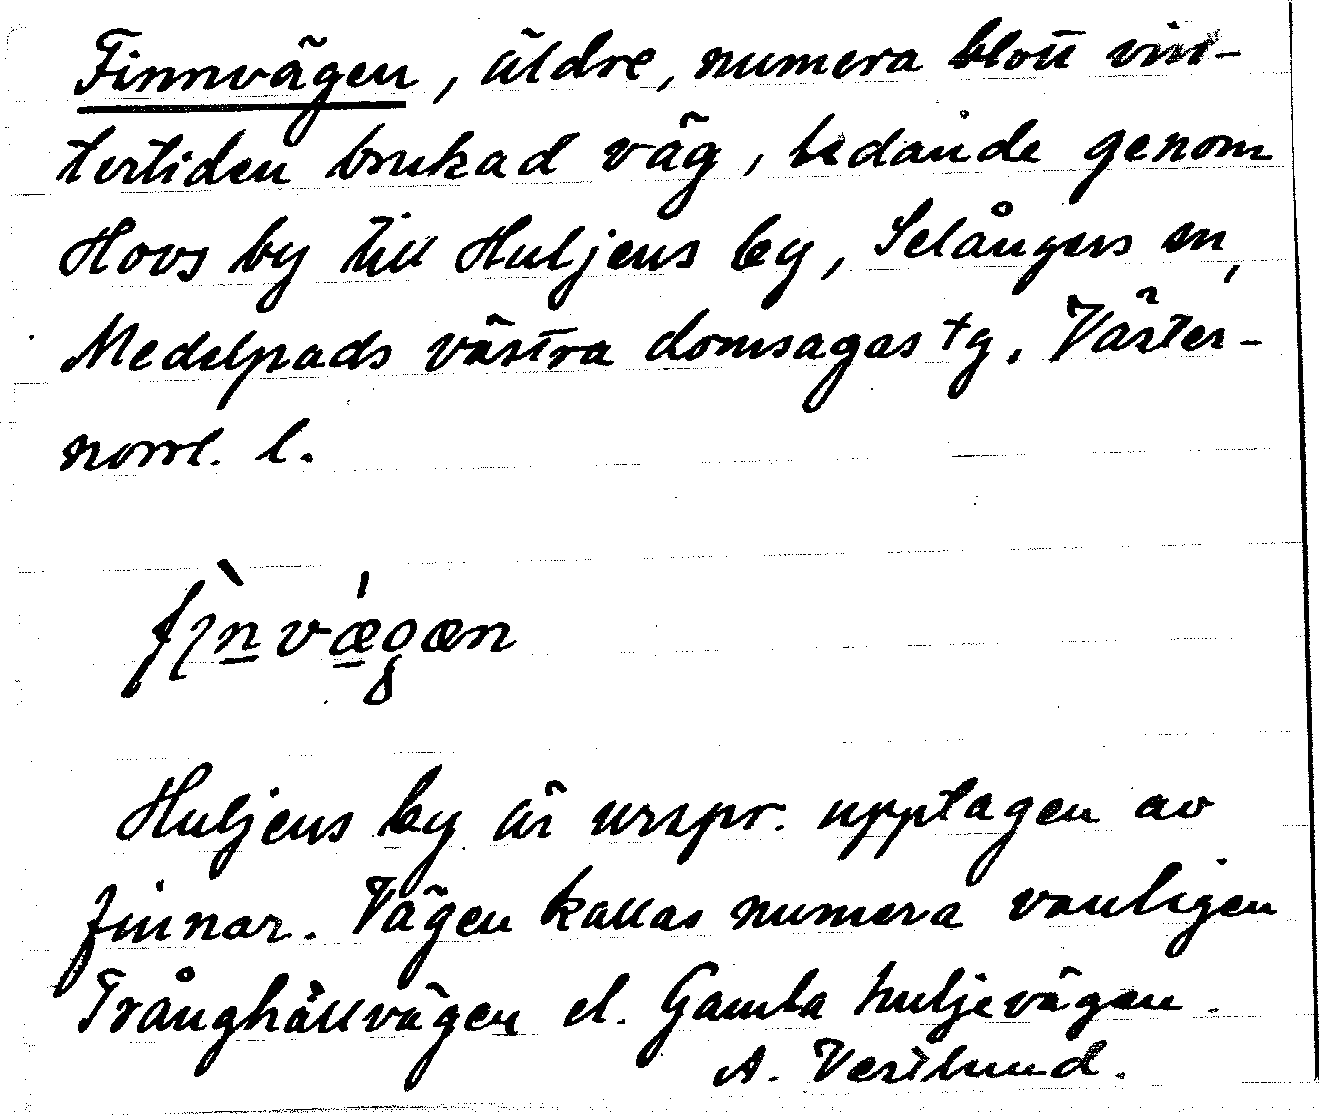 Finnvägen, äldre, numera blott vin-
tertiden brukad väg, ledande genom
Hovs by till Huljens by, Selångers sn,
Medelpads västra domsagas tg. Väster-
norrl. l.
fìnvǽgæn
Huljens by är urspr. upptagen av
finnar. Vägen kallas numera vanligen
Trånghällvägen el. Gamla huljevägen.
A. Vestlund.